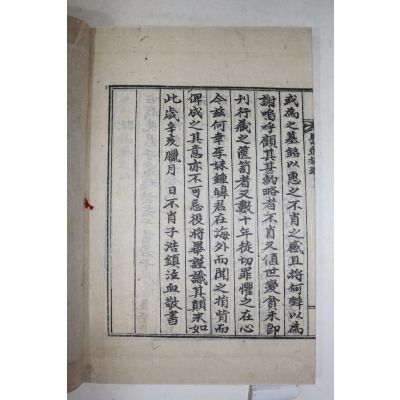 或為之墓銘以惠之不肖之感且將何辭以為
謝嗚呼顧其甚約略者不肖又値世變貧未卽
刊行藏之篋笥者又數十年徒切罪懼之在心
令玆何幸李妹鍾 君在海外而聞之捐背而
俾成之其意亦不可忌後將畢謹識其顚末如
此歲辛亥臘月 日不肖子浩鎮泣血敬書